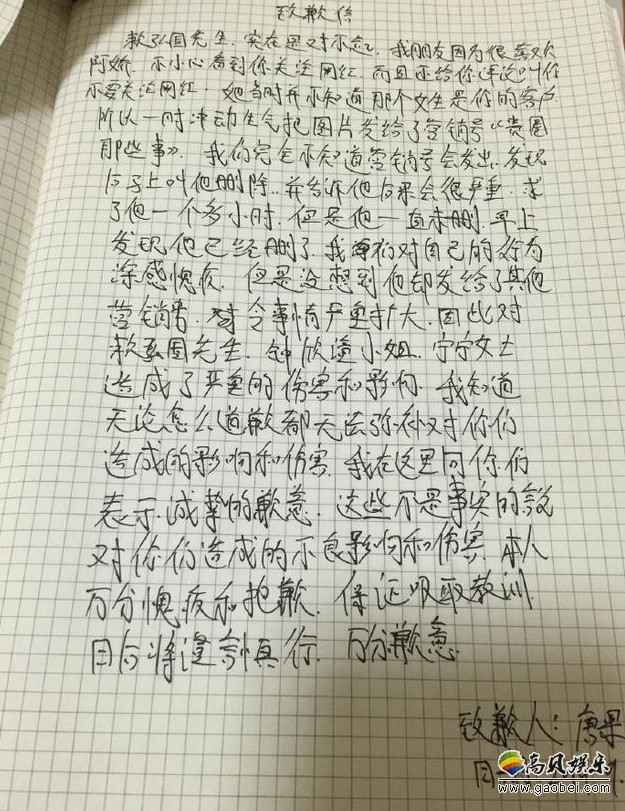 致歉信
赖弘国先生. 实在是对不起. 我朋友因为很喜欢
阿娇. 不小心看到你关注网红. 而且还给你评论叫你
不要关注网红. 她当时并不知道那个女生是你的客户
所以一时冲动生气把图片发给了营销号《贵圈
那些事》. 我们完全不知道营销号会发出. 发现
后马上叫他删除. 并告诉他后果会很严重. 求
了他一个多小时. 但是他一直未删. 早上
发现他已经删了. 我们对自己的行为
深感愧疚. 但是没想到他却发给了其他
营销号. 令事情严重扩大. 因此对
赖弘国先生. 钟欣潼小姐. 宁宁女士
造成了严重的伤害和影响. 我知道
无论怎么道歉都无法弥补对你们
造成的影响和伤害. 我在这里向你们
表示诚挚的歉意. 这些不是事实的
对你们造成的不良影响和伤害. 本人
万分愧疚和抱歉. 保证吸取教训.
日后将谨言慎行. 万分歉意.
致歉人: 唐果
日
高贝娱乐
www.gaobei.com